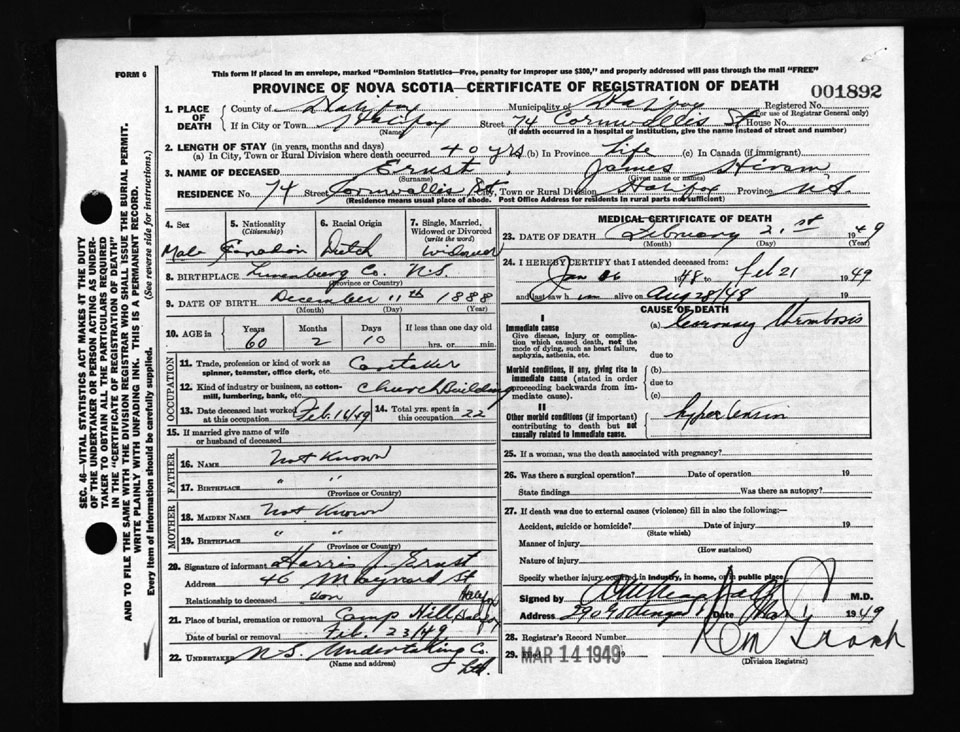 FORM 6
This form if placed in an envelope, marked "Dominion Statistics—Free, penalty for improper use $300," and properly addressed will pass through the mail "FREE"
PROVINCE OF NOVA SCOTIA—CERTIFICATE OF REGISTRATION OF DEATH
001892
1. PLACE OF DEATH
County of Halifax Municipality of Halifax Registered No.
(For use of Registrar General only)
If in City or Town Halifax Street 74 Cornwallis St House No.
(Name) (If death occurred in a hospital or institution, give the name instead of street and number)
2. LENGTH OF STAY (in years, months and days)
(a) In City, Town or Rural Division where death occurred 40 yrs (b) In Province Life (c) In Canada (if immigrant)
3. NAME OF DECEASED Ernst, James Hiram
(Surname) (Given name or names)
RESIDENCE No. 74 Street Cornwallis St City, Town or Rural Division Halifax Province N.S
(Residence means usual place of abode. Post Office Address for residents in rural parts not sufficient)
4. Sex
Male
5. Nationality (Citizenship)
Canadian
6. Racial Origin
Dutch
7. Single, Married, Widowed or Divorced (write the word)
Widower
8. BIRTHPLACE Lunenburg Co. N.S.
(Province or Country)
9. DATE OF BIRTH December 11th 1888
(Month) (Day) (Year)
10. AGE in Years Months Days If less than one day old
60 2 10 hrs. or min.
OCCUPATION
11. Trade, profession or kind of work as spinner, teamster, office clerk, etc. Caretaker
12. Kind of industry or business, as cotton-mill, lumbering, bank, etc. Church Building
13. Date deceased last worked at this occupation Feb. 16/49
14. Total yrs. spent in this occupation 22
15. If married give name of wife or husband of deceased
FATHER
16. NAME Not Known
17. BIRTHPLACE " "
(Province or Country)
MOTHER
18. MAIDEN NAME Not Known
19. BIRTHPLACE " "
(Province or Country)
20. Signature of informant Harris J. Ernst
Address 46 Maynard St Halifax
Relationship to deceased son
21. Place of burial, cremation or removal Camp Hill Halifax
Date of burial or removal Feb. 23/49
22. UNDERTAKER N.S. Undertaking Co. Ltd.
(Name and address)
MEDICAL CERTIFICATE OF DEATH
23. DATE OF DEATH February 21st 1949
(Month) (Day) (Year)
24. I HEREBY CERTIFY that I attended deceased from:
Jan 16 1948 to Feb 21 1949
and last saw him alive on Aug 28/48 19
CAUSE OF DEATH
I
Immediate cause
Give disease, injury or complication which caused death, not the mode of dying, such as heart failure, asphyxia, asthenia, etc.
(a) Coronary Thrombosis
due to
Morbid conditions, if any, giving rise to immediate cause (stated in order proceeding backwards from immediate cause).
(b)
due to
(c)
II
Other morbid conditions (if important) contributing to death but not causally related to immediate cause.
hypertension
25. If a woman, was the death associated with pregnancy?
26. Was there a surgical operation? Date of operation 19
State findings Was there an autopsy?
27. If death was due to external causes (violence) fill in also the following:—
Accident, suicide or homicide? Date of injury 19
(State which)
Manner of injury
(How sustained)
Nature of injury
Specify whether injury occurred in industry, in home, or in public place
Signed by M.D.
Address 290 Gottingen St Date Mar 1 1949
28. Registrar's Record Number
29. Filed MAR 14 1949 19
(Division Registrar)
SEC. 46—VITAL STATISTICS ACT MAKES IT THE DUTY
OF THE UNDERTAKER OR PERSON ACTING AS UNDER-
TAKER TO OBTAIN ALL THE PARTICULARS REQUIRED
IN THE "CERTIFICATE OF REGISTRATION OF DEATH"
AND TO FILE THE SAME WITH THE DIVISION REGISTRAR WHO SHALL ISSUE THE BURIAL PERMIT.
WRITE PLAINLY WITH UNFADING INK. THIS IS A PERMANENT RECORD.
Every item of information should be carefully supplied. (See reverse side for instructions.)